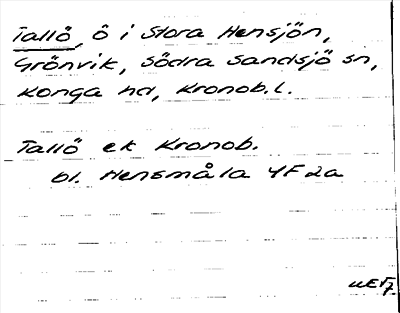 Tallö, ö i Stora Hensjön,
Grönvik, Södra Sandsjö sn,
Konga hd, Kronob.l.
Tallö ek Kronob.
bl. Hensmåla 4F 2a